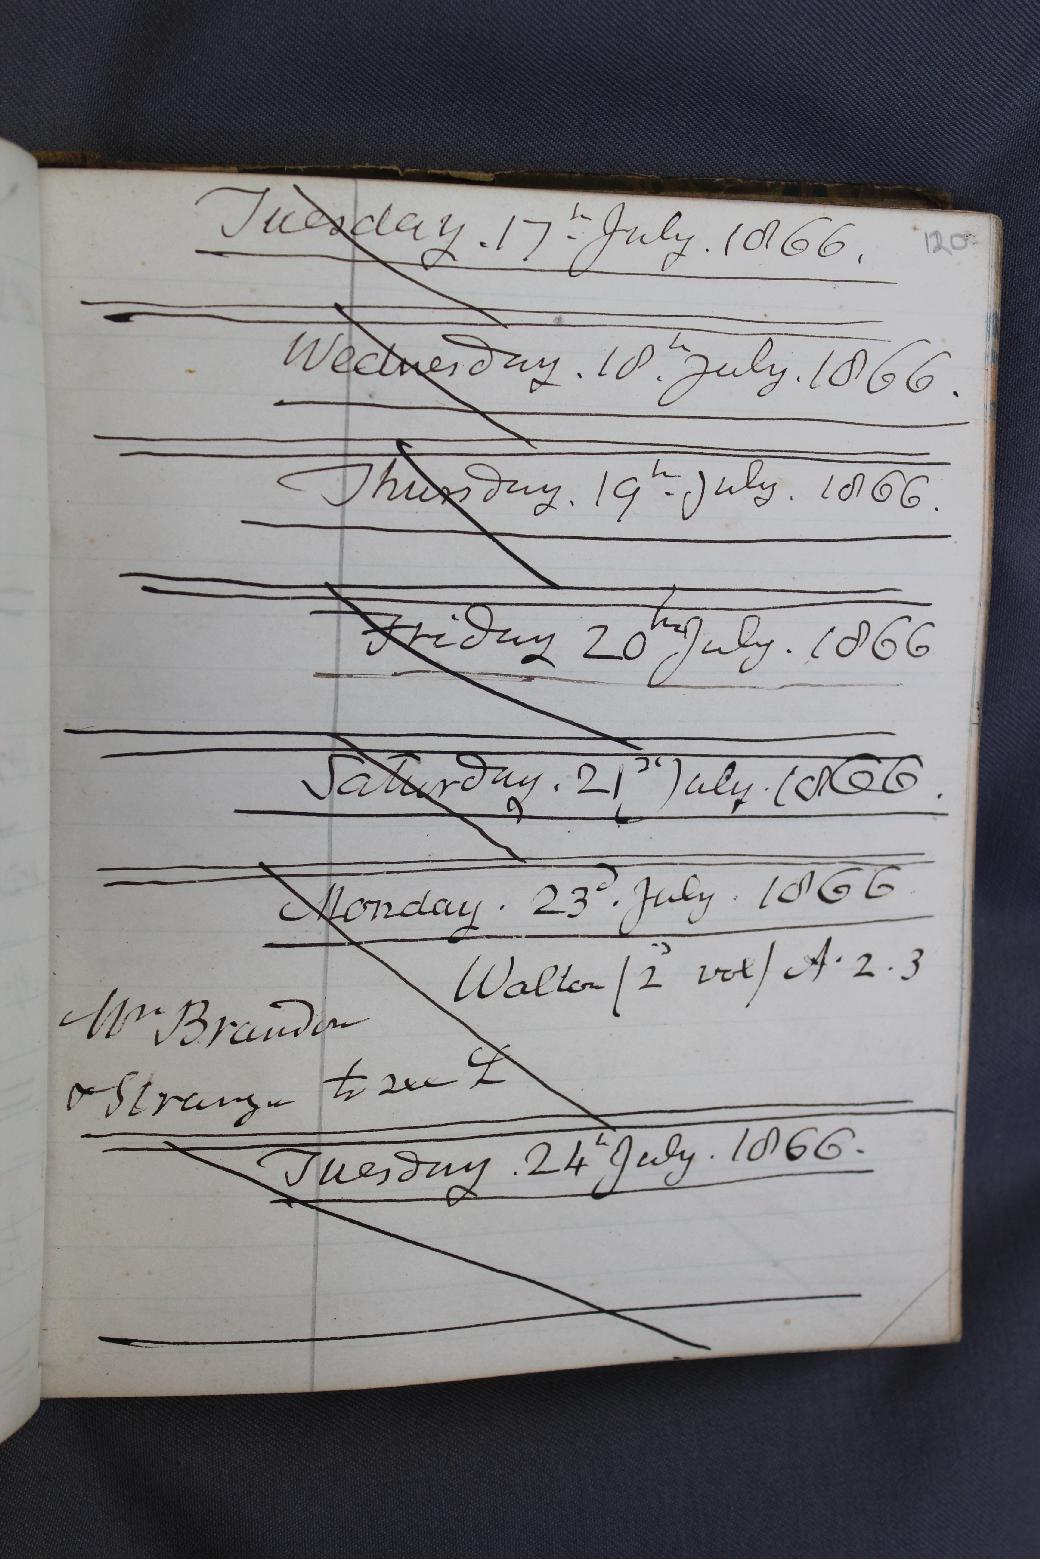 120
Tuesday. 17th July. 1866.
Wednesday. 18th July. 1866.
Thursday. 19th July. 1866.
Friday 20th July. 1866
Saturday. 21st July. 1866.
Monday. 23d. July. 1866
Walton (2d vol) A. 2. 3
Mr Brandon
& Strange to see L
Tuesday. 24th July. 1866.